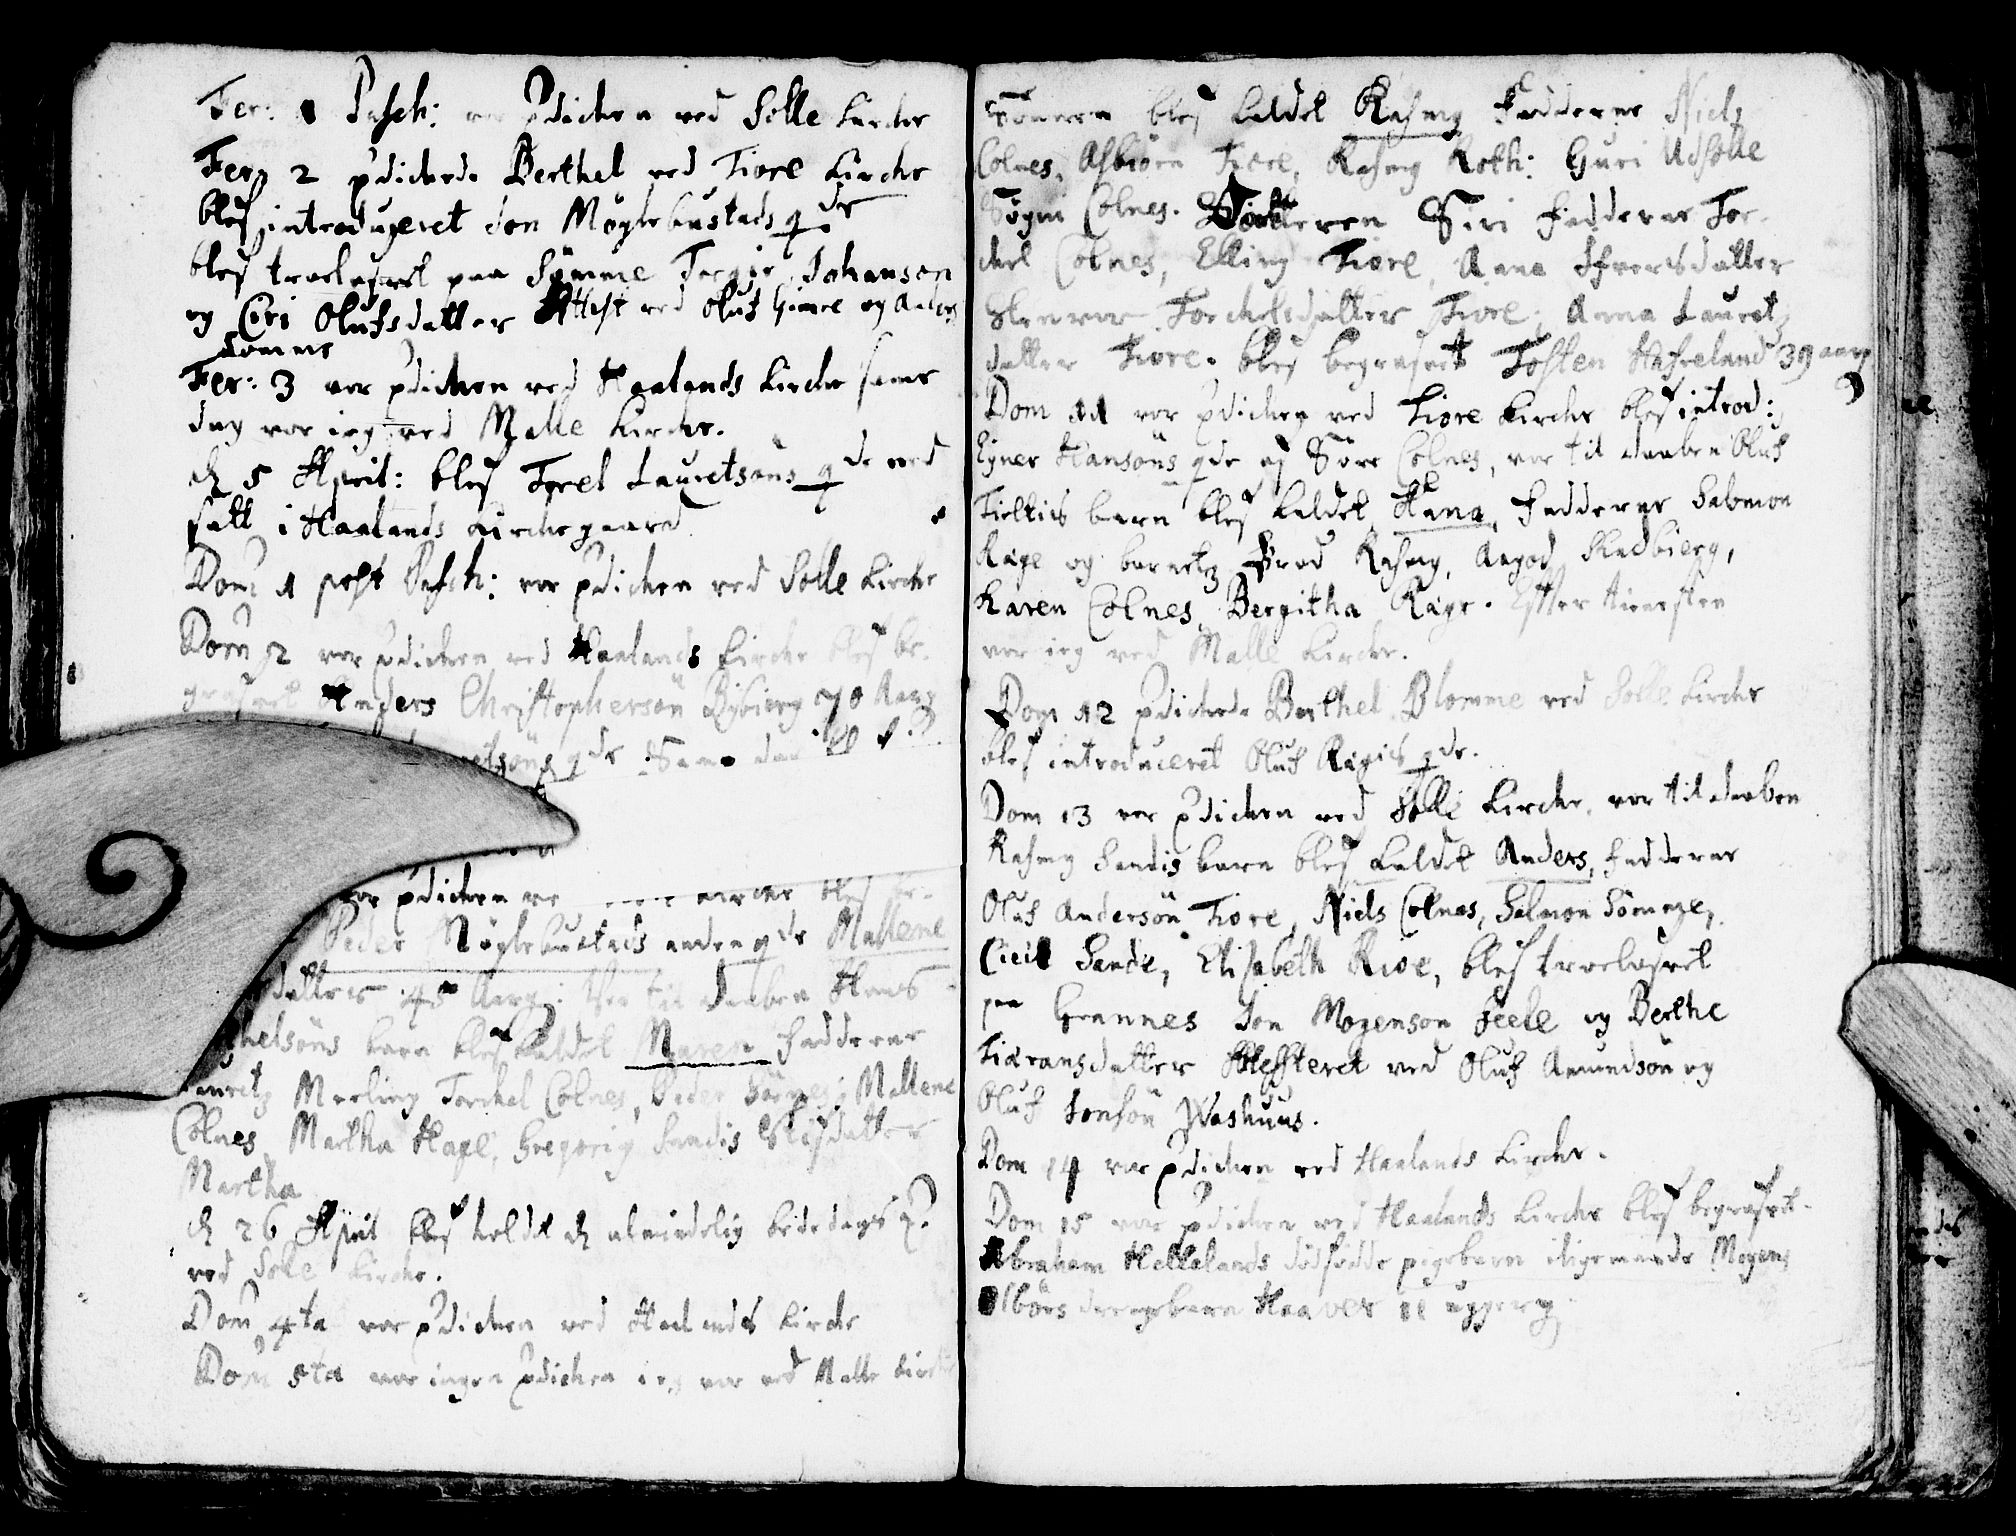 Fer: 1 Pasch: var pdicken ved Solle Kircke
Fer: 2 pdickede Berthel ved Tiore Kircke
blef introduceret Jon Møglebustads qde
blef troelofvet paa Sømme Torgier Johansen
og Ciri Olufsdatter Attest ved Oluf Gimre og Anders
Sømme
Fer: 3 var pdicken ved Haalands Kircke same
dag var ieg ved Malle Kircke.
d 5 April: blef Torel Lauretsøns qde ned
satt i Haalands Kirckegaard
Dom 1 post Pasch: var pdicken ved Solle Kircke
Dom 2 var pdicken ved Haalands Kircke blef be-
grafvet Anders Christophersøn Byberg 70 Aar
qde Same dag
var pdicken ve Kircke blef be-
Peder Møglebustads anden qde Mallene
datter 45 Aar: Var til daaben Hans
helsøns barn blef kaldet Maren fadderne
Lauretz Meling Torckel Colnes, Peder Sørnes, Mallene
Colnes Martha Hage, Gregorig Sandis Stifdatter
Martha
d 26 April blef holdet d almindelig bededags p.
ved Sole Kircke.
Dom 4ta var pdicken ved Haalands Kircke
Dom 5ta var ingen pdicken ieg var ved Malle Kircke
Sønnen blef kaldet Rasmg Fadderne Niels
Colnes, Asbiørn Tiore, Rasmg Roth: Guri Udsolle
Søgni Colnes. Dotteren Siri Fadderne Tor-
ckel Colnes, Elling Tiore, Anna Ifversdatter
Steenvor Torckelsdatter Tiore, Anna Lauretz
datter Tiore. blef begrafvet Tosten Hafreland 39 aar
Dom 11 var pdicken ved Tiore Kircke blef introd:
Eyner Hansøns qde af Søre Colnes, var til daaben Oluf
Tieltis barn blef kaldet Hana, Fadderne Salomon
Rage og barnetz Brod Rasmg, Aagod Stadbierg,
Karen Colnes, Bergitha Rage. Effter tienesten
var ieg ved Malle Kircke.
Dom 12 pdickede Berthel Blomme ved Solle Kircke
blef introduceret Oluf Rægis qde.
Dom 13 var pdicken ved Solle Kircke, var til daaben
Rasmg Sandis barn blef kaldet Anders, fadderne
Oluf Andersøn Tiore, Niels Colnes, Salmon Sømme,
Cicil Sande, Elisabeth Rioe, blef troelofvet
paa Grannes Jon Mogenson Feede og Berthe
Tiøransdatter Attesteret ved Oluf Amundsøn og
Oluf Jonsøn Washuus.
Dom 14 var pdicken ved Haalands Kircke.
Dom 15 var pdicken ved Haalands Kircke blef begrafvet
Abraham Hellelands dødfødde pigebarn iligemaade Mogens
Ølbørs drengebarn Haaver 11 uger